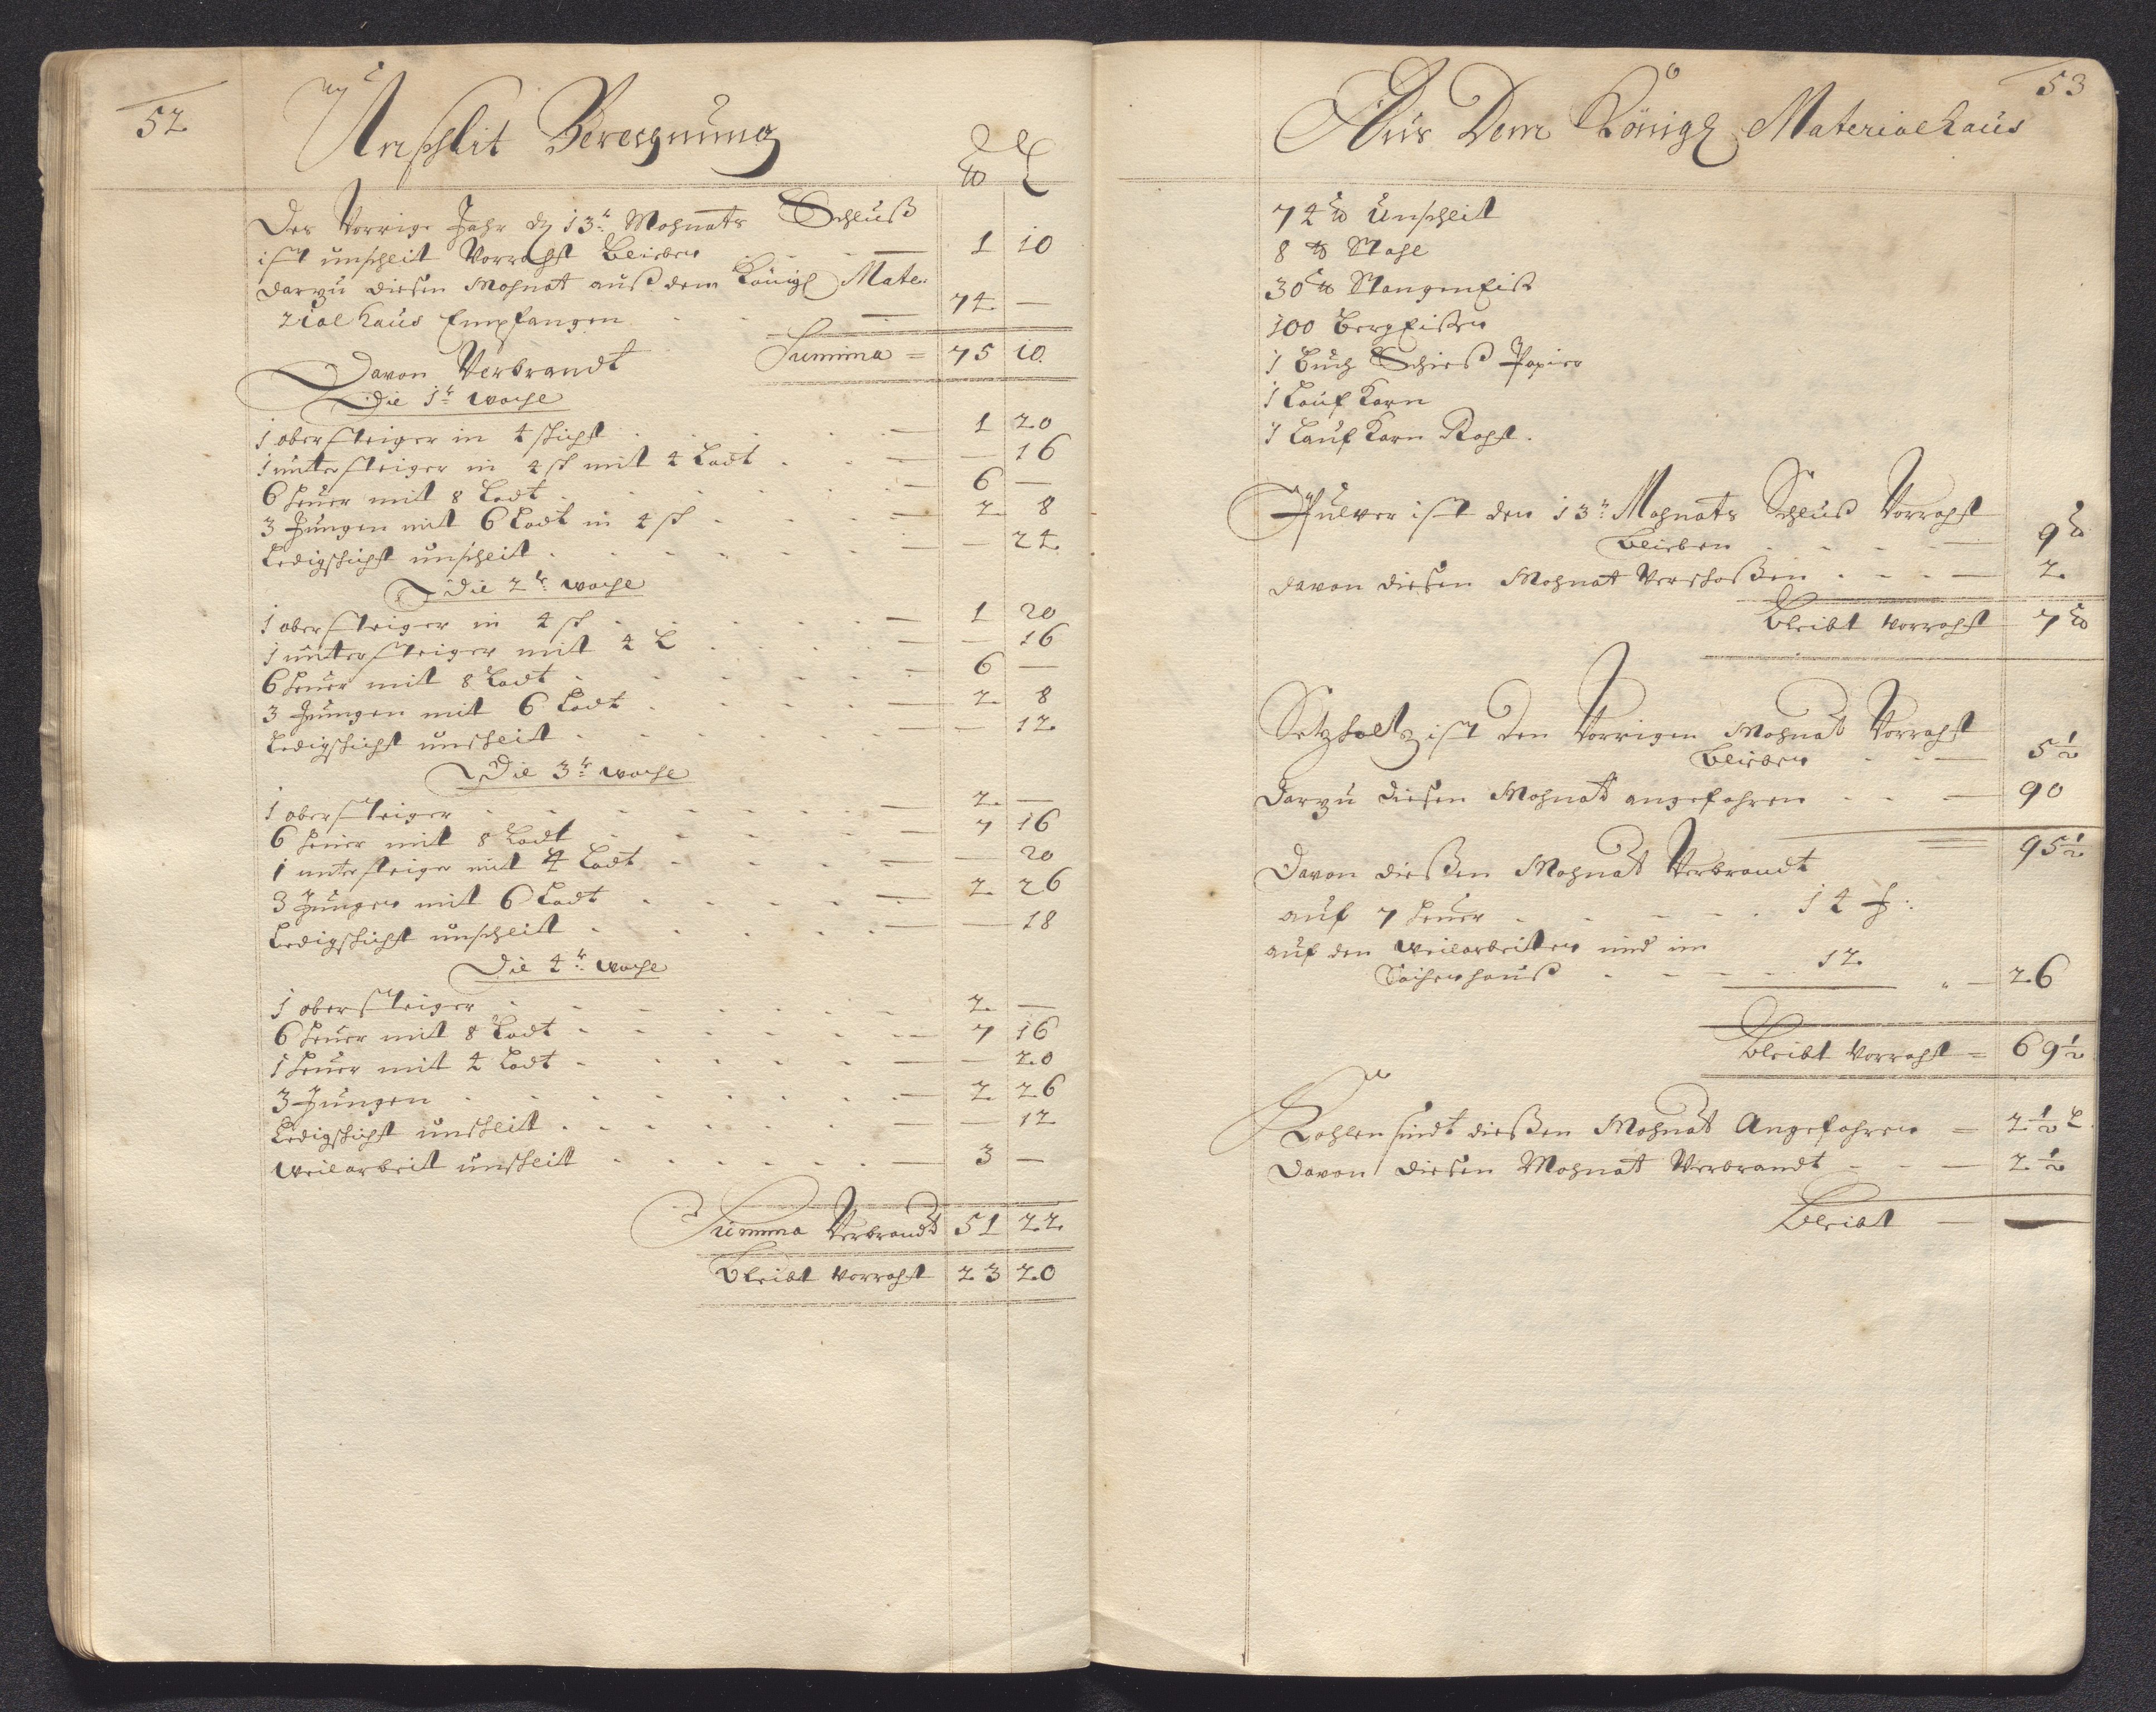 52
Unschlit Berechnung
℔ L
Des Vorrige Jahr dz 13t Mohnats Schluß
ist unschlit Vorraht blieben — 1 10
darzu diesen Mohnat auß dem Königl Mate:
rialhaus Empfangen — 74 —
Summa = 75 10
Davon Verbrandt
Die 1t woche
1 obersteiger in 4 schicht — 1 20
1 untersteiger in 4 sch mit 4 Lodt — — 16
6 heuer mit 8 Lodt — 6 —
3 Jungen mit 6 Lodt in 4 sch — 2 8
Ledigschicht unschlit — — 24
Die 2t woche
1 obersteiger in 4 sch — 1 20
1 untersteiger mit 4 L — — 16
6 heuer mit 8 Lodt — 6 —
3 Jungen mit 6 Lodt — 2 8
Ledigschicht unschlit — — 12
Die 3t woche
1 obersteiger — 2 —
6 heuer mit 8 Lodt — 7 16
1 untersteiger mit 4 Lodt — — 20
3 Jungen mit 6 Lodt — 2 26
Ledigschicht unschlit — — 18
Die 4t woche
1 obersteiger — 2 —
6 heuer mit 8 Lodt — 7 16
1 heuer mit 4 Lodt — — 20
3 Jungen — 2 26
Ledigschicht unschlit — — 12
weilarbeit unschlit — 3 —
Summa Verbrandt 51 22
Bleibt Vorraht 23 20
53
Aus Dem Königl Materialhaus
74 ℔ Unschlit
8 ℔ Stahl
30 ℔ Stangeneiß
100 Bergeißen
1 Buch Schieß Papier
1 Lauf Karn
1 Lauf Karn Raht.
Pulver ist den 13t Mohnats Schluß Vorraht
blieben — 9 ℔
davon diesen Mohnat Verschoßen — 2
Bleibt Vorraht 7 ℔
Setzholtz ist den Vorrigen Mohnat Vorraht
blieben — 5 1/2
darzu diesen Mohnat angefahren — 90
95 1/2
Davon dießen Mohnat Verbrandt
auf 7 heuer 14 f:
auf den weilarbeiten und im
Sachenhauß 12 — 26
Bleibt Vorraht = 69 1/2
Kohlen sindt dießen Mohnat Angefahren = 2 1/2 L
davon diesen Mohnat Verbrandt — 2 1/2
Bleibt — —